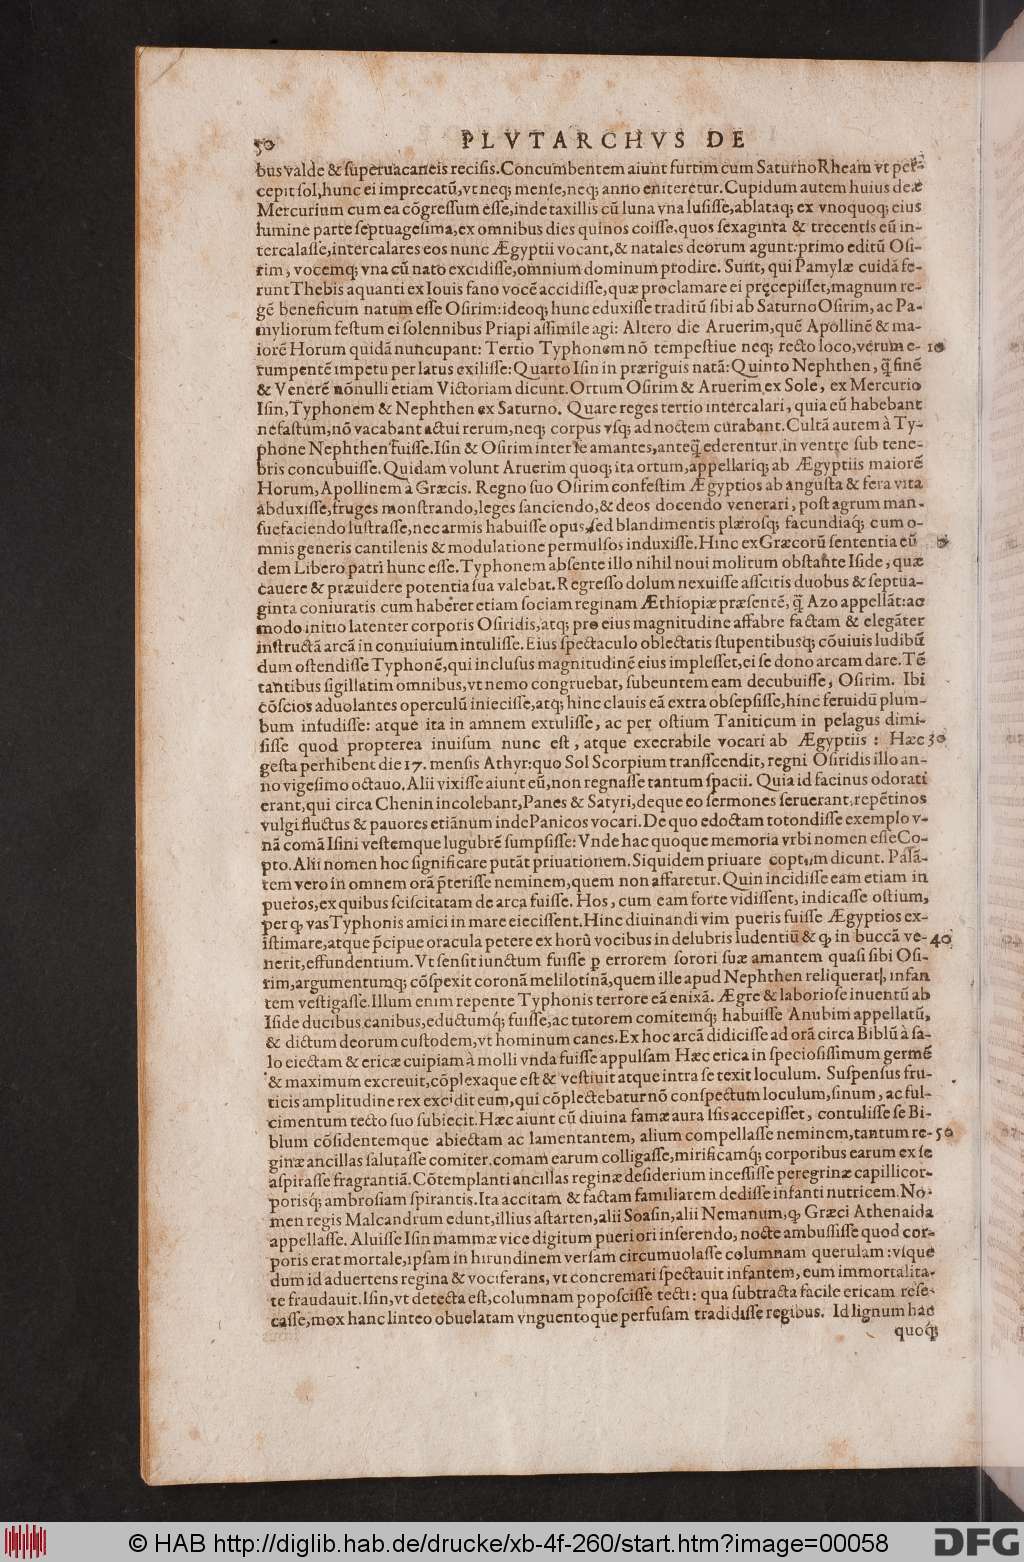 50 PLVTARCHVS DE
bus valde & superuacaneis recisis. Concumbentem aiunt furtim cum Saturno Rheam vt per-
cepit sol, hunc ei imprecatũ, vt neq; mense, neq; anno eniteretur. Cupidum autem huius deæ
Mercurium cum ea cõgressum esse, inde taxillis cũ luna vna lusisse, ablataq; ex vnoquoq; eius
lumine parte septuagesima, ex omnibus dies quinos coisse, quos sexaginta & trecentis eũ in-
tercalasse, intercalares eos nunc Ægyptii vocant, & natales deorum agunt: primo editũ Osi-
rim, vocemq; vna cũ nato excidisse, omnium dominum prodire. Sunt, qui Pamylæ cuidã fe-
runt Thebis aquanti ex Iouis fano vocẽ accidisse, quæ proclamare ei pręcepisset, magnum re-
gẽ beneficum natum esse Osirim: ideoq; hunc eduxisse traditũ sibi ab Saturno Osirim, ac Pa-
myliorum festum ei solennibus Priapi assimile agi: Altero die Aruerim, quẽ Apollinẽ & ma-
iorẽ Horum quidã nuncupant: Tertio Typhonem nõ tempestiue neq; recto loco, verum e- 10
rumpentẽ impetu per latus exilisse: Quarto Isin in præriguis natã: Quinto Nephthen, q̃ finẽ
& Venerẽ nõnulli etiam Victoriam dicunt. Ortum Osirim & Aruerim ex Sole, ex Mercurio
Isin, Typhonem & Nephthen ex Saturno. Quare reges tertio intercalari, quia eũ habebant
nefastum, nõ vacabant actui rerum, neq; corpus vsq; ad noctem curabant. Cultã autem à Ty-
phone Nephthen fuisse. Isin & Osirim inter se amantes, anteq̃ ederentur in ventre sub tene-
bris concubuisse. Quidam volunt Aruerim quoq; ita ortum, appellariq; ab Ægyptiis maiorẽ
Horum, Apollinem à Græcis. Regno suo Osirim confestim Ægyptios ab angusta & fera vita
abduxisse, fruges monstrando, leges sanciendo, & deos docendo venerari, post agrum man-
suefaciendo lustrasse, nec armis habuisse opus, sed blandimentis plærosq; facundiaq; cum o-
mnis generis cantilenis & modulatione permulsos induxisse. Hinc ex Græcorũ sententia eũ
dem Libero patri hunc esse. Typhonem absente illo nihil noui molitum obstante Iside, quæ
cauere & præuidere potentia sua valebat. Regresso dolum nexuisse asscitis duobus & septua-
ginta coniuratis cum haberet etiam sociam reginam Æthiopiæ præsentẽ, q̃ Azo appellãt: ac
modo initio latenter corporis Osiridis, atq; pro eius magnitudine affabre factam & elegãter
instructã arcã in conuiuium intulisse. Eius spectaculo oblectatis stupentibusq; cõuiuis ludibũ
dum ostendisse Typhonẽ, qui inclusus magnitudinẽ eius implesset, ei se dono arcam dare. Tẽ
tantibus sigillatim omnibus, vt nemo congruebat, subeuntem eam decubuisse, Osirim. Ibi
cõscios aduolantes operculũ iniecisse, atq; hinc clauis eã extra obsepsisse, hinc feruidũ plum-
bum infudisse: atque ita in amnem extulisse, ac per ostium Taniticum in pelagus dimi-
sisse quod propterea inuisum nunc est, atque execrabile vocari ab Ægyptiis: Hæc 30
gesta perhibent die 17. mensis Athyr: quo Sol Scorpium transscendit, regni Osiridis illo an-
no vigesimo octauo. Alii vixisse aiunt eũ, non regnasse tantum spacii. Quia id facinus odorati
erant, qui circa Chenin incolebant, Panes & Satyri, deque eo sermones seruerant, repẽtinos
vulgi fluctus & pauores etiãnum inde Panicos vocari. De quo edoctam totondisse exemplo v-
nã comã Isini vestemque lugubrẽ sumpsisse: Vnde hac quoque memoria vrbi nomen esse Co-
pto. Alii nomen hoc significare putãt priuationem. Siquidem priuare coptum dicunt. Passã-
tem vero in omnem orã p̃terisse neminem, quem non affaretur. Quin incidisse eam etiam in
pueros, ex quibus sciscitatam de arca fuisse. Hos, cum eam forte vidissent, indicasse ostium,
per q, vas Typhonis amici in mare eiecissent. Hinc diuinandi vim pueris fuisse Ægyptios ex-
istimare, atque p̃cipue oracula petere ex horũ vocibus in delubris ludentiũ & q, in buccã ve- 40
nerit, effundentium. Vt sensit iunctum fuisse p errorem sorori suæ amantem quasi sibi Osi-
rim, argumentumq; cõspexit coronã melilotinã, quem ille apud Nephthen reliquerat, infan
tem vestigasse. Illum enim repente Typhonis terrore eã enixã. Ægre & laboriose inuentũ ab
Iside ducibus canibus, eductumq; fuisse, ac tutorem comitemq; habuisse Anubim appellatũ,
& dictum deorum custodem, vt hominum canes. Ex hoc arcã didicisse ad orã circa Biblũ à sa-
lo eiectam & ericæ cuipiam à molli vnda fuisse appulsam Hæc erica in speciosissimum germẽ
& maximum excreuit, cõplexaque est & vestiuit atque intra se texit loculum. Suspensus fru-
ticis amplitudine rex excidit eum, qui cõplectebatur nõ conspectum loculum, sinum, ac ful-
cimentum tecto suo subiecit. Hæc aiunt cũ diuina famæ aura Isis accepisset, contulisse se Bi-
blum cõsidentemque abiectam ac lamentantem, alium compellasse neminem, tantum re- 50
ginæ ancillas salutasse comiter. comam earum colligasse, mirificamq; corporibus earum ex se
aspirasse fragrantiã. Cõtemplanti ancillas reginæ desiderium incessisse peregrinæ capilli cor-
porisq; ambrosiam spirantis. Ita accitam & factam familiarem dedisse infanti nutricem. No-
men regis Malcandrum edunt, illius astarten, alii Soasin, alii Nemanum, q, Græci Athenaida
appellasse. Aluisse Isin mammæ vice digitum pueri ori inserendo, nocte ambussisse quod cor-
poris erat mortale, ipsam in hirundinem versam circumuolasse columnam querulam: vsque
dum id aduertens regina & vociferans, vt concremari spectauit infantem, eum immortalita-
te fraudauit. Isin, vt detecta est, columnam poposcisse tecti: qua subtracta facile ericam rese-
casse, mox hanc linteo obuelatam vnguentoque perfusam tradidisse regibus. Id lignum hac
quoq;
© HAB http://diglib.hab.de/drucke/xb-4f-260/start.htm?image=00058
DFG